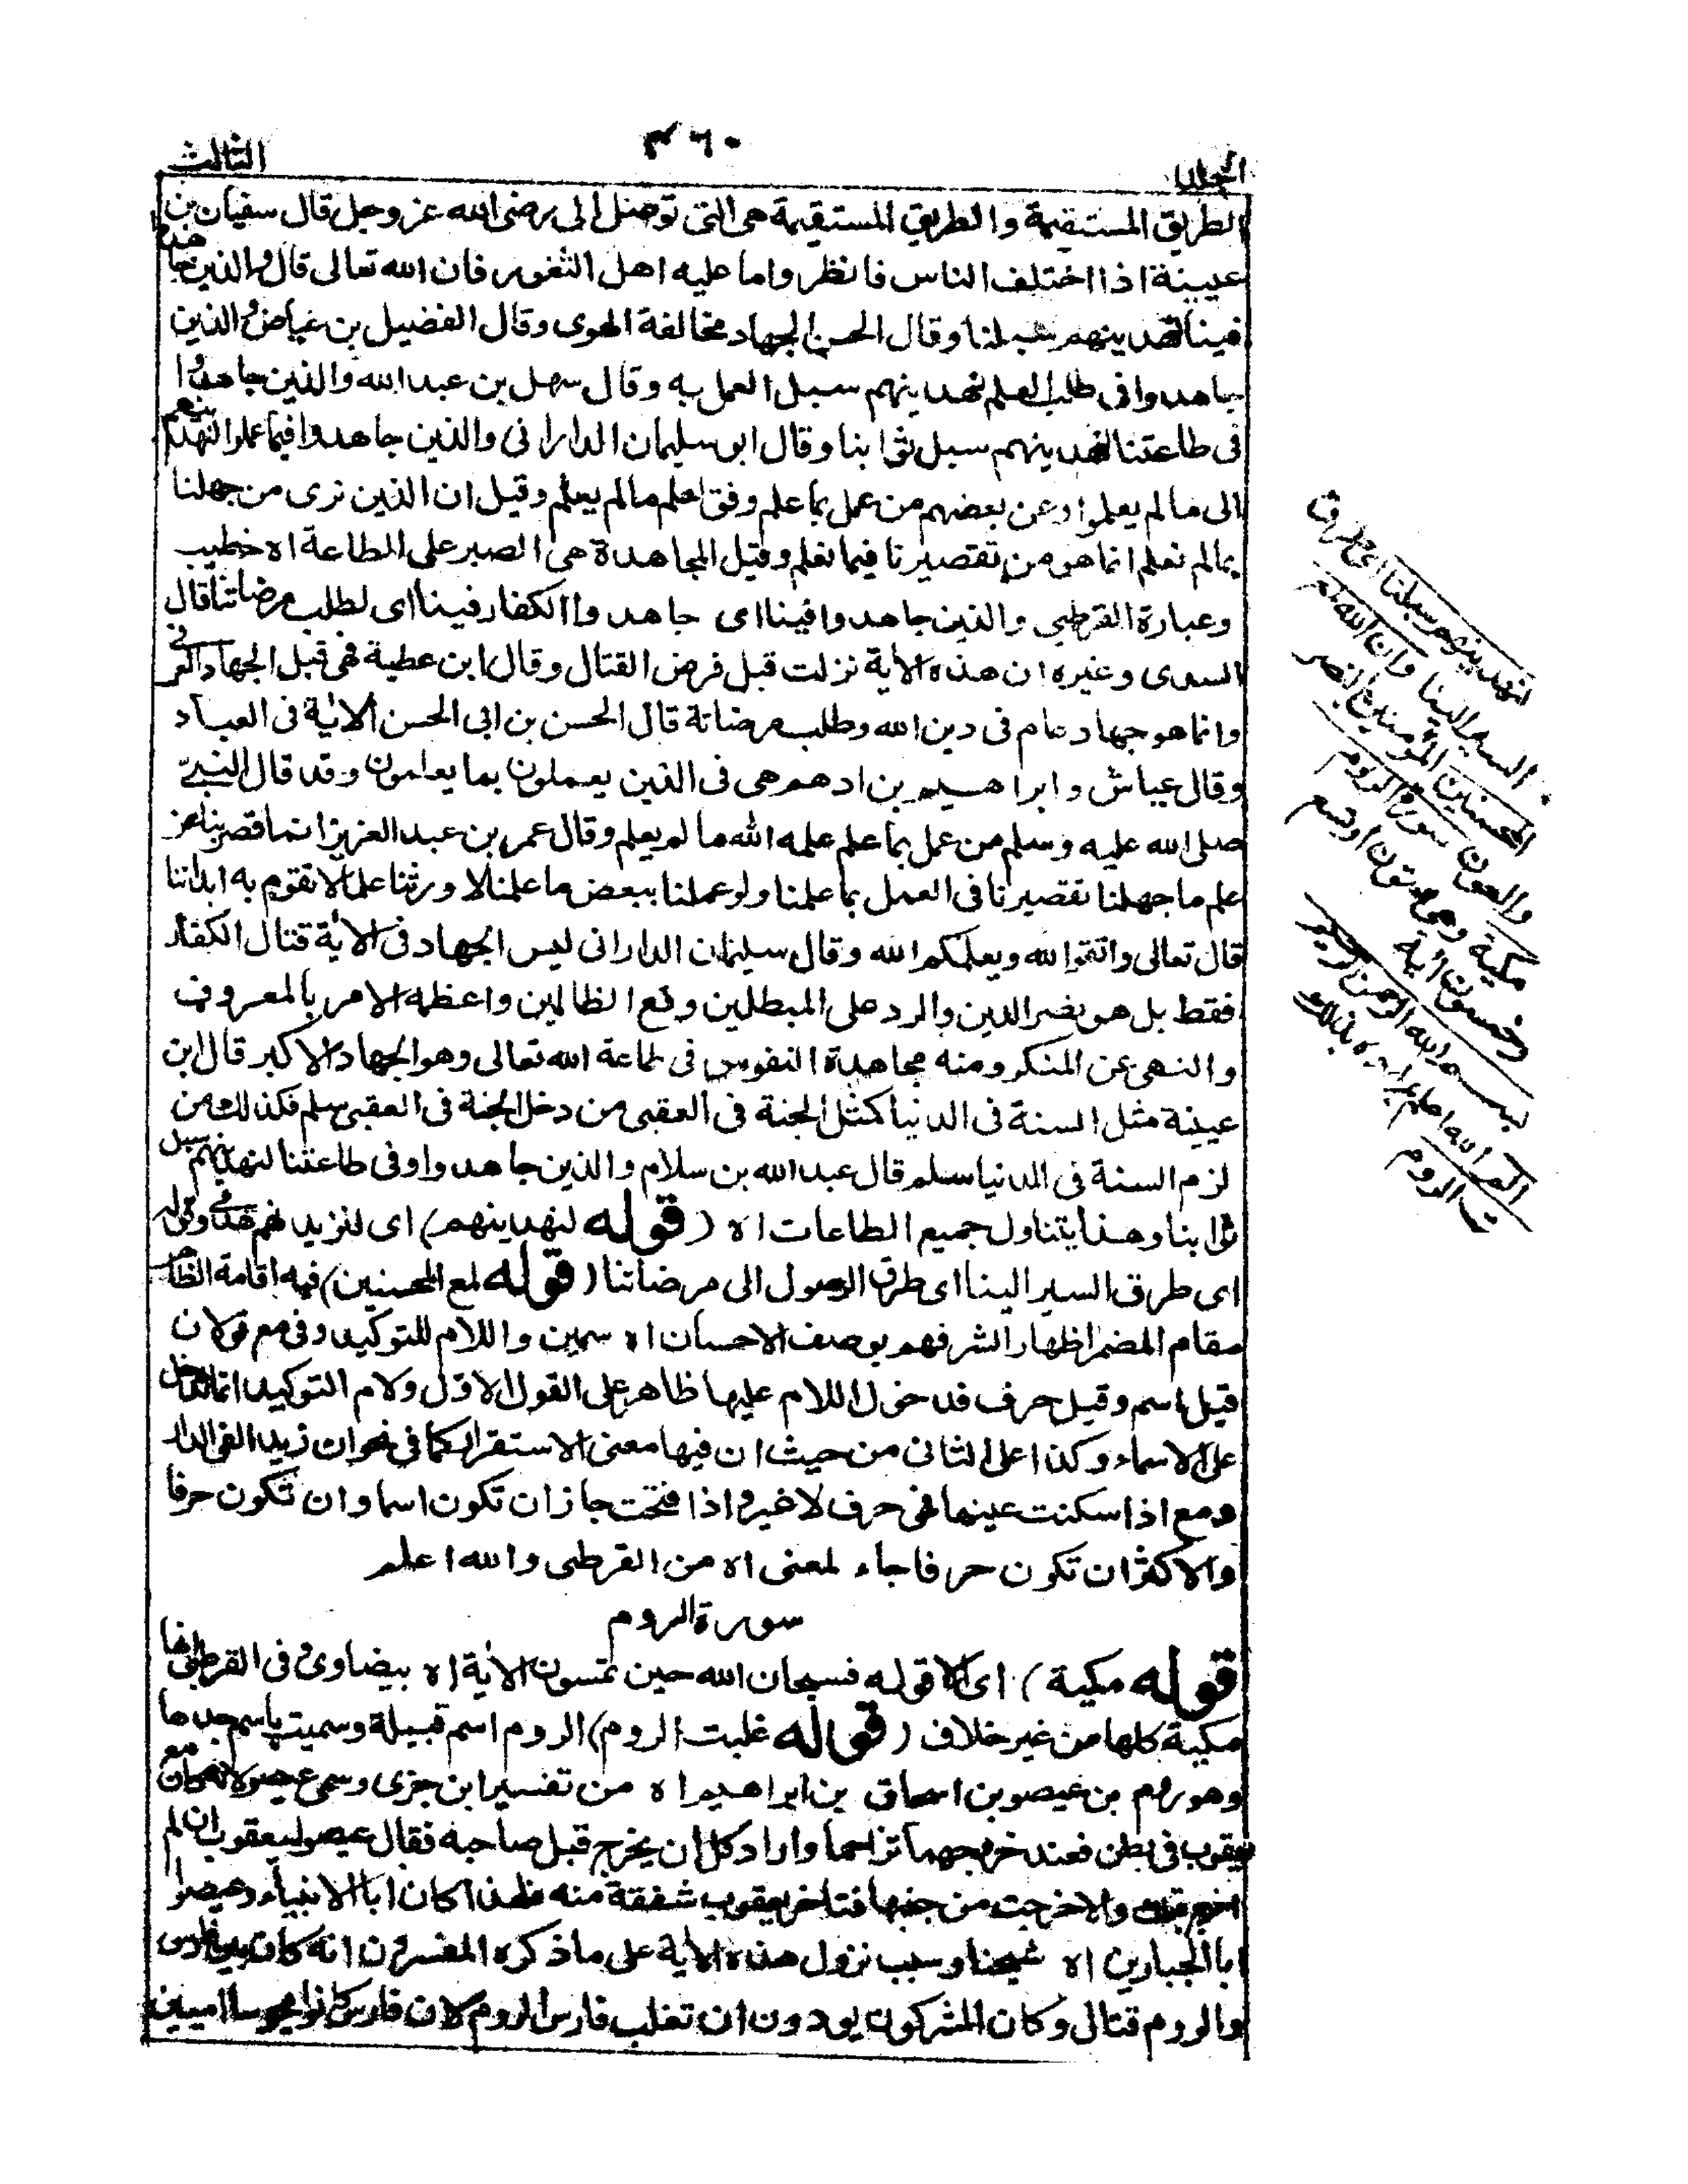 المجلد
٤٦٠
الثالث
الطريق المستقيمة والطريق المستقيمة هى التى توصل الى رضى الله عز وجل قال سفيان بن
عيينة اذا اختلف الناس فانظروا ما عليه اهل الثغور فان الله تعالى قال والذين جاهدوا
فينا لنهدينهم سبلنا وقال الحسن الجهاد مخالفة الهوى وقال الفضيل بن عياض والذين
جاهدوا فى طلب العلم لنهدينهم سبل العمل به وقال سهل بن عبد الله والذين جاهدوا
فى طاعتنا لنهدينهم سبل ثوابنا وقال ابو سليمان الدارانى والذين جاهدوا فيما علموا لنهدينهم
الى ما لم يعلموا وعن بعضهم من عمل بما علم وفق لعلم مالم يعلم وقيل ان الذين نرى من جهلنا
بمالم نعلم انما هو من تقصيرنا فيما نعلم وقيل المجاهدة هى الصبر على الطاعة اه خطيب
وعبارة القرطبى والذين جاهدوا فينا اى جاهدوا الكفار فينا اى لطلب مرضاتنا قال
السدى وغيره ان هذه الأية نزلت قبل فرض القتال وقال ابن عطية فهى قبل الجهاد العرفى
وانما هو جهاد عام فى دين الله وطلب مرضاتة قال الحسن بن ابى الحسن ألاية فى العباد
وقال عياش وابراهسيم بن ادهم هى فى الذين يعملون بما يعلمون وقد قال النبى
صلى الله عليه وسلم من عمل بما علم علمه الله ما لم يعلم وقال عمر بن عبد العزيز انما قصر بنا عن
علم ما جهلنا تقصيرنا فى العمل بما علمنا ولو عملنا ببعض ما علمنا لا ورثنا علما لا تقوم به ابداننا
قال تعالى واتقوا الله ويعلمكم الله وقال سليمان الدارانى ليس الجهاد فى الأية قتال الكفار
فقط بل هو نصر الدين والرد على المبطلين وقع الظالمين واعظمه الامر بالمعروف
والنهى عن المنكر ومنه مجاهدة النفوس فى طاعة الله تعالى وهو الجهاد الاكبر قال ابن
عيينة مثل السنة فى الدنيا كمثل الجنة فى العقبى من دخل الجنة فى العقبى سلم فكذلك من
لزم السنة فى الدنيا سلم قال عبد الله بن سلام والذين جاهدوا وفى طاعتنا لنهدينهم سبل
ثوابنا وهذا يتناول جميع الطاعات اه (قوله لنهدينهم) اى لنزيد نهم هدى وقوله
اى طرق السير الينا اى طرق الوصول الى مرضاتنا (قوله لمع المحسنين) فيه اقامة الظاهر
مقام المضمر اظهارا لشرفهم بوصف الاحسان اه سمين واللام للتوكيد وفى مع قولان
قيل اسم وقيل حرف فدخول اللام عليها ظاهر على القول الاول ولام التوكيد انما تدخل
على الاسماء وكذا على الثانى من حيث ان فيها معنى الاستقرار كما فى نحو ان زيدا لفى الدار
ومع اذا سكنت عينها فهى حرف لا غير واذا فتحت جاز ان تكون اسما وان تكون حرفا
والاكثر ان تكون حرفا جاء لمعنى اه من القرطبى والله اعلم
سورة الروم
قوله مكية) اى الا قوله فسبحان الله حين تمسون الأية اه بيضاوى وفى القرطبى انها
مكية كلها من غير خلاف (قوله غلبت الروم) الروم اسم قبيلة وسميت باسم جدها
وهو روم بن عيصو بن اسحاق بن ابراهيم اه من تفسير ابن جزى وسمى عيصو لانه كان مع
يعقوب فى بطن فعند خروجهما تزاحما واراد كل ان يخرج قبل صاحبه فقال عيصو ليعقوب ان لم
اخرج قبلك والا خرجت من جنبها فتاخر يعقوب شفقة منه فلهذا كان ابا الانبياء وعيصو
ابا الجبارين اه شيخنا وسبب نزول هذه الأية على ما ذكره المفسرون انه كان بين فارس
والروم قتال وكان المشركون يودون ان تغلب فارس الروم لان فارس كانوا مجوسا اميين
لنهدينهم سبلنا اى طرق
السير الينا وان الله لمع
المحسنين المؤمنين بالنصر
والعون سورة الروم
مكية وهى ستون او تسع
وخمسون أية
بسم الله الرحمن الرحيم
الم الله اعلم بمراده بذلك
غلبت الروم